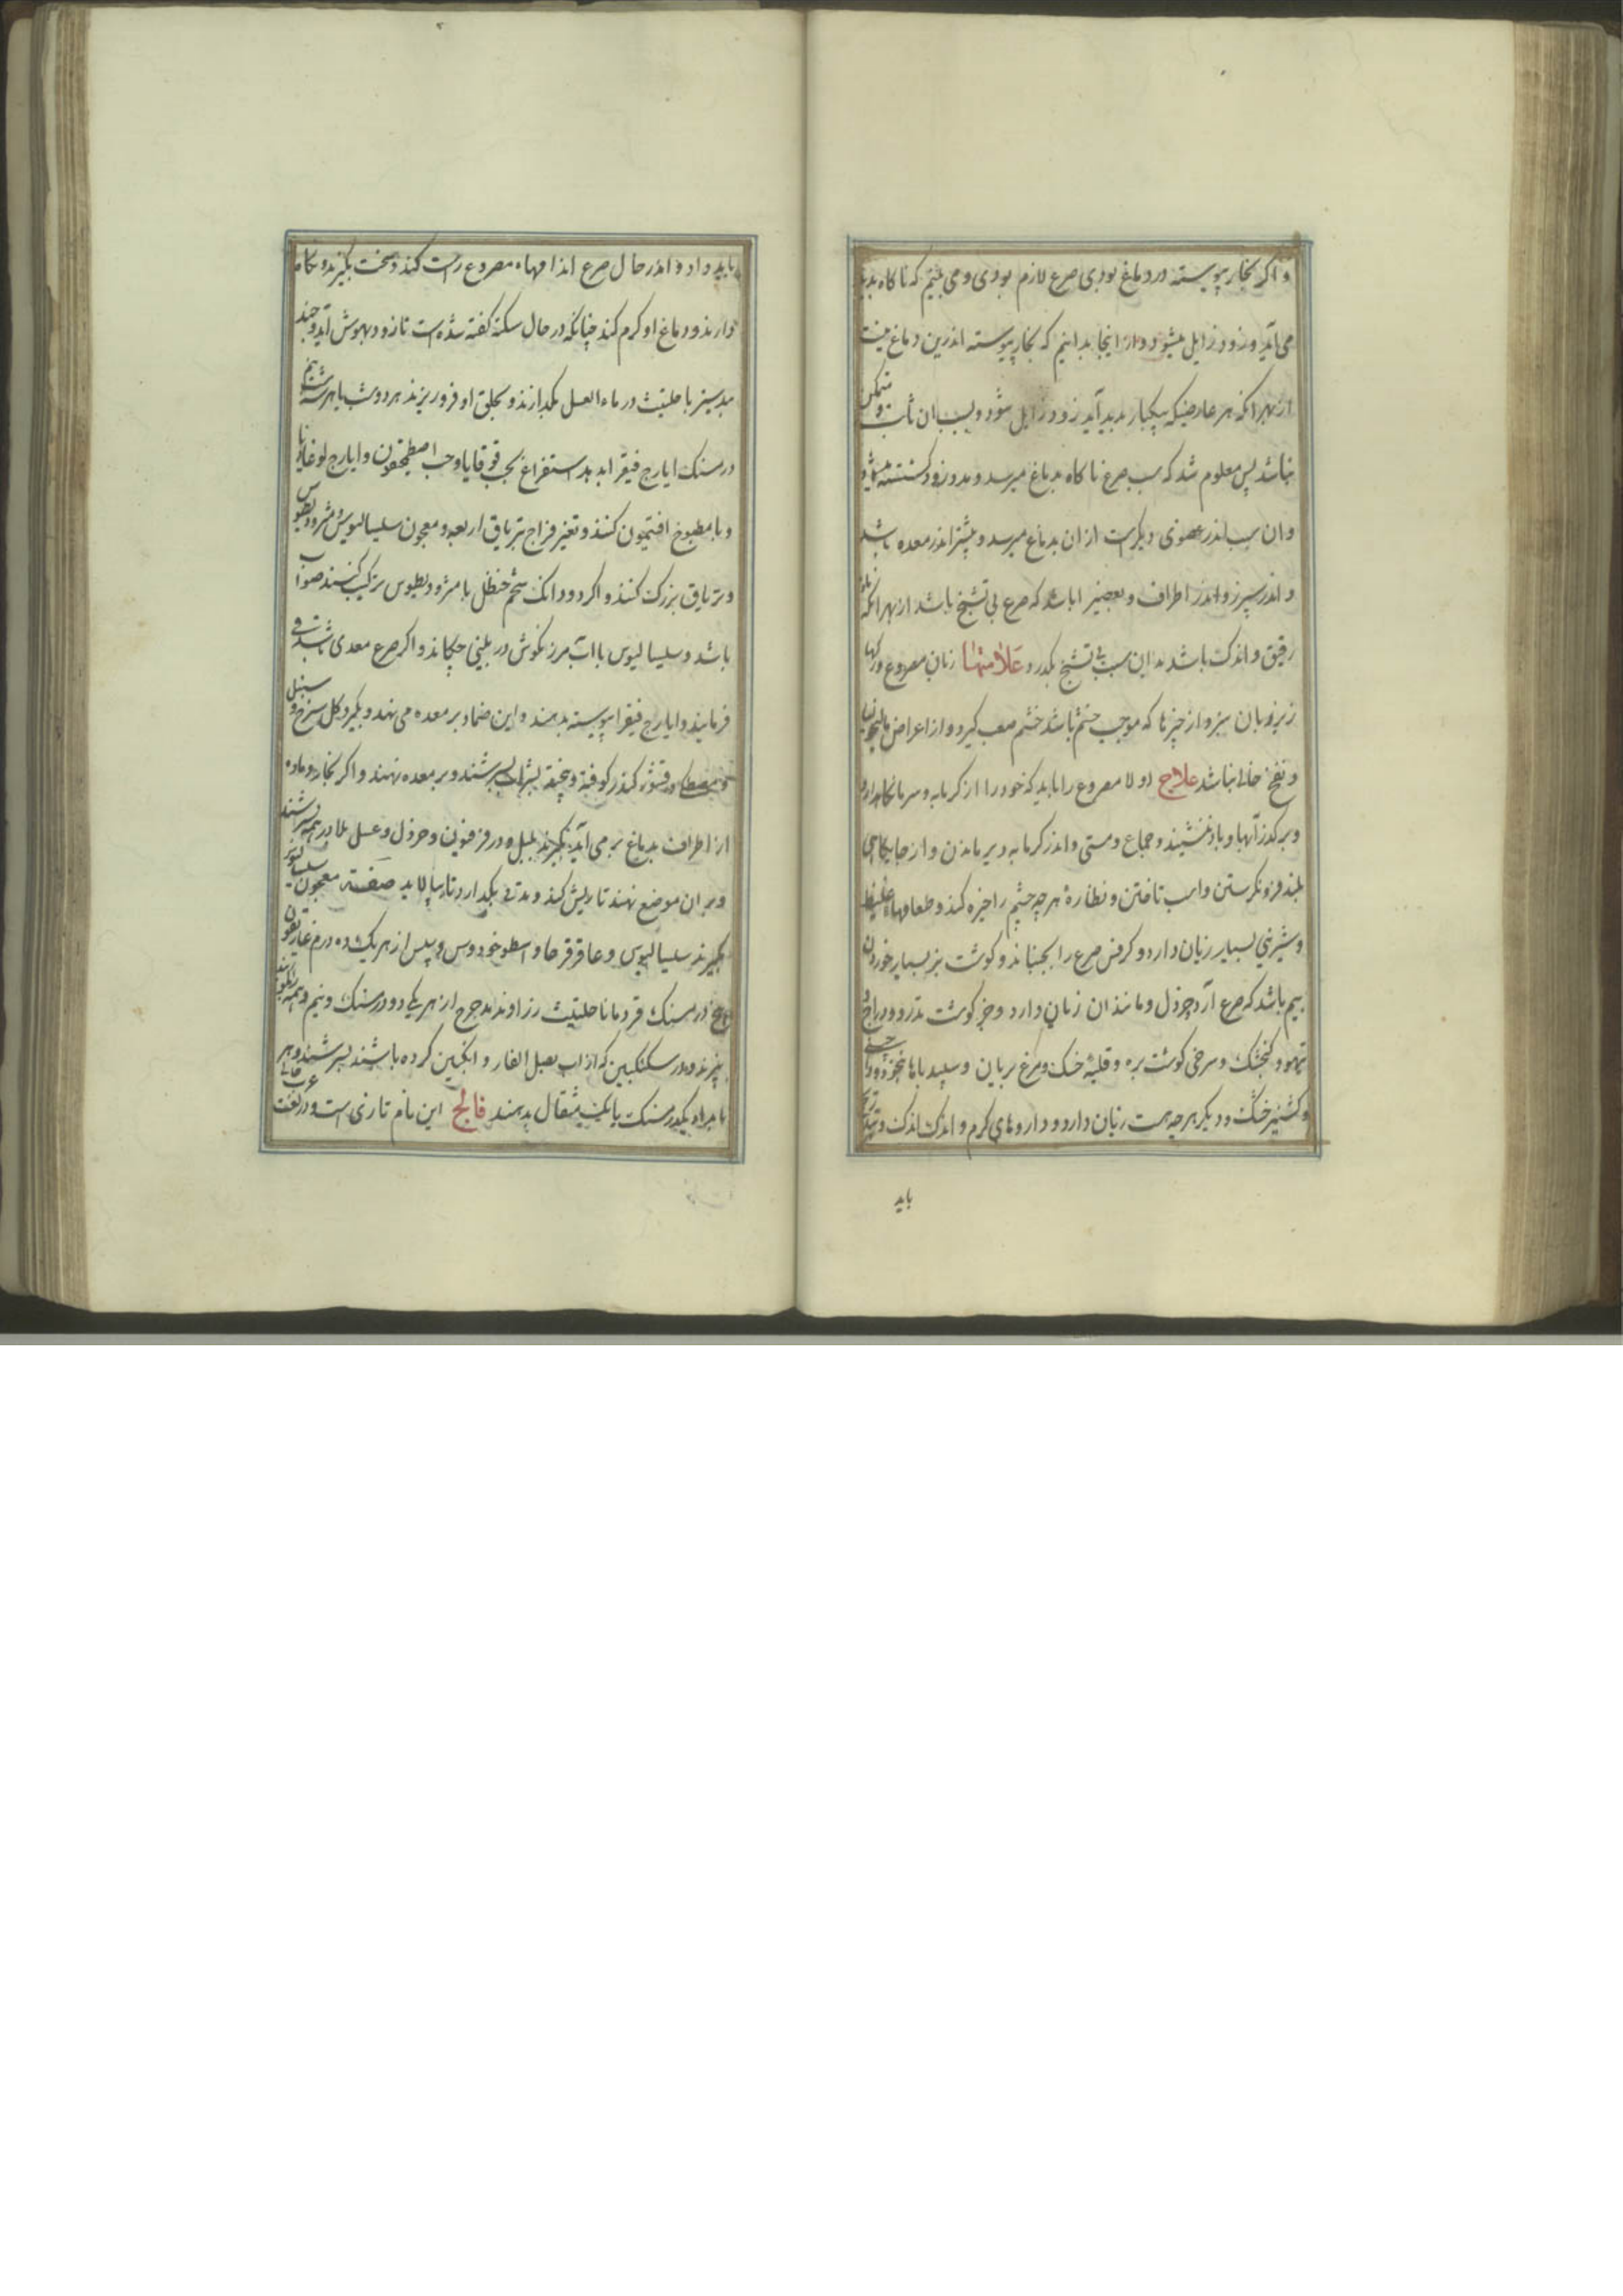 و اگر بخار پیوسته در دماغ بودی صرع لازم بودی و می بینم که ناکاه پدید
می آید و زود زایل میشود و از اینجا بدانیم که بخار پیوسته اندرین دماغ نیست
از بهر انکه هر عارضیکه بیکبار پدید آید زود زایل شود و سبب ان ثابت و متمکن
نباشد پس معلوم شد که سبب صرع ناکاه بدماغ میرسد و بدو زود کشسته میشود
وان سبب اندر عضوی دیکرست از ان بدماغ میرسد و بیشتر اندر معده باشد
و اندر سپرز و اندر اطراف و بعضی را باشد که صرع بی تشنج باشد از بهر انکه ماده
رقیق و اندک باشد بدان سبب بی تشنج بکدرد علامتها زبان مصروع و رکها
زیر زبان سبز و از چیزها که موجب خشم باشد خشم صعب کیرد و از اعراض مالیخولیا
و نفخ خالی نباشد علاج اولا مصروع را باید که خود را از کرما و سرما نکاهدارد
و بر کدر آبها و باد ننشیند و جماع و مستی و اندر کرمابه دیر ماندن و از جایکاهی
بلند فرو نکرستن و اسب تافتن و نظاره هرچه چشم را خیره کند و طعامهاء غلیظ
و شیرینی بسیار زیان دارد و کرفس صرع را بجنباند و کوشت بز بسیار خوردن
بیم باشد که صرع آرد خردل و مانند ان زیان دارد و جز کوشت تدرو و دراج و
تیهو و کنجشک و سرخی کوشت بره و قلیه خشک و مرغ بریان و سپید باها نخورد و
و کشنیز خشک و دیکر هرچه هست زیان دارد و داروهای کرم و اندک اندک و بتدریج
باید
باید داد و اندر حال صرع اندامهاء مصروع راست کند و سخت بکیرد و نکاه
دارند و دماغ او کرم کند چنانکه در حال سکته کفته شده است تا زود بهوش آید و جند
بیدستر با حلتیت در ماء العسل بکدازند و بحلق او فرو ریزند هر دو شب یا هر سه شب نیم
درمسنک ایارج فیقرا بدهد استفراغ بحب قوقایا و حب اصطمخیقون و ایارج لوغاذیا
و با مطبوخ افتیمون کنند و تغیر مزاج بتریاق اربعه و معجون سیسالیوس و مثرودیطوس
و تریاق بزرک کنند و اکر دو دانک شحم حنظل با مثرودیطوس ترکیب کنند صواب
باشد و سیسالیوس با آب مرزنکوش در بینی چکاند و اکر صرع معدی باشد قی
فرمایند و ایارج فیقرا پیوسته بدهند و این ضماد بر معده می نهند و بکیرد کل سرخ و سنبل
و مصطکی و قشور کندر کوفته و بیخته بشراب بسرشند و بر معده نهند و اکر بخار و ماده
از اطراف بدماغ بر می آید بکیرند بلبل و در فرفیون و خردل و عسل بلادر همه بسرشند
و بر ان موضع نهند تا ریش کند و مدتی بکدارد تا بپالاید صفت معجون سیسالیوس
بکیرند سیسالیوس و عاقرقرحا و اسطوخودوس و پس از هر یک ده درم غاریقون
پنج درمسنک قردمانا حلتیت زراوند مدحرج از هر یک دو درمسنک و نیم و همه را بکوبند
بپزند و در سکنکبین که از اب بصل الفار و انکبین کرده باشند بسرشند و هر
بامداد یکدرمسنک یا یک مثقال بدهند فالج این نام تازی است و در لغت عرب